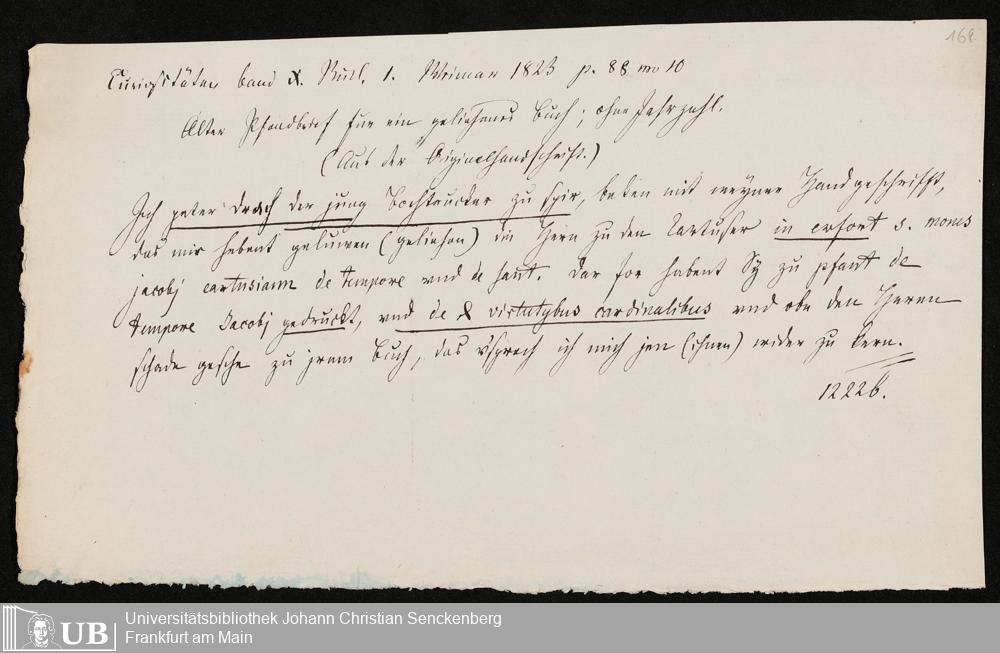 168.
Curiositäten band X. Stück. 1. Weimar 1823 p. 88 no 10
Alter Pfandbrief für ein geliehenes Buch; ohne Jahrzahl.
(Aus der Originalhandschrift.)
Ich peter drach der jung bochtrucker zu spir, beken mit meyner Handgeschrifft,
das mir hebent geluwen (geliehen) die Hern zu den Cartuser in erfort s. mones
jacobj cartusiann de tempore vnd de sant. dar for habent Sy zu pfant de
tempore Jacobj gedruckt, vnd de virtutybus cardinalibus vnd obe den Herrn
schade gesche zu jrem buch, das vsprech ich mich jen (ihnen) wider zu kern.
12226.
Universitätsbibliothek Johann Christian Senckenberg
UB Frankfurt am Main